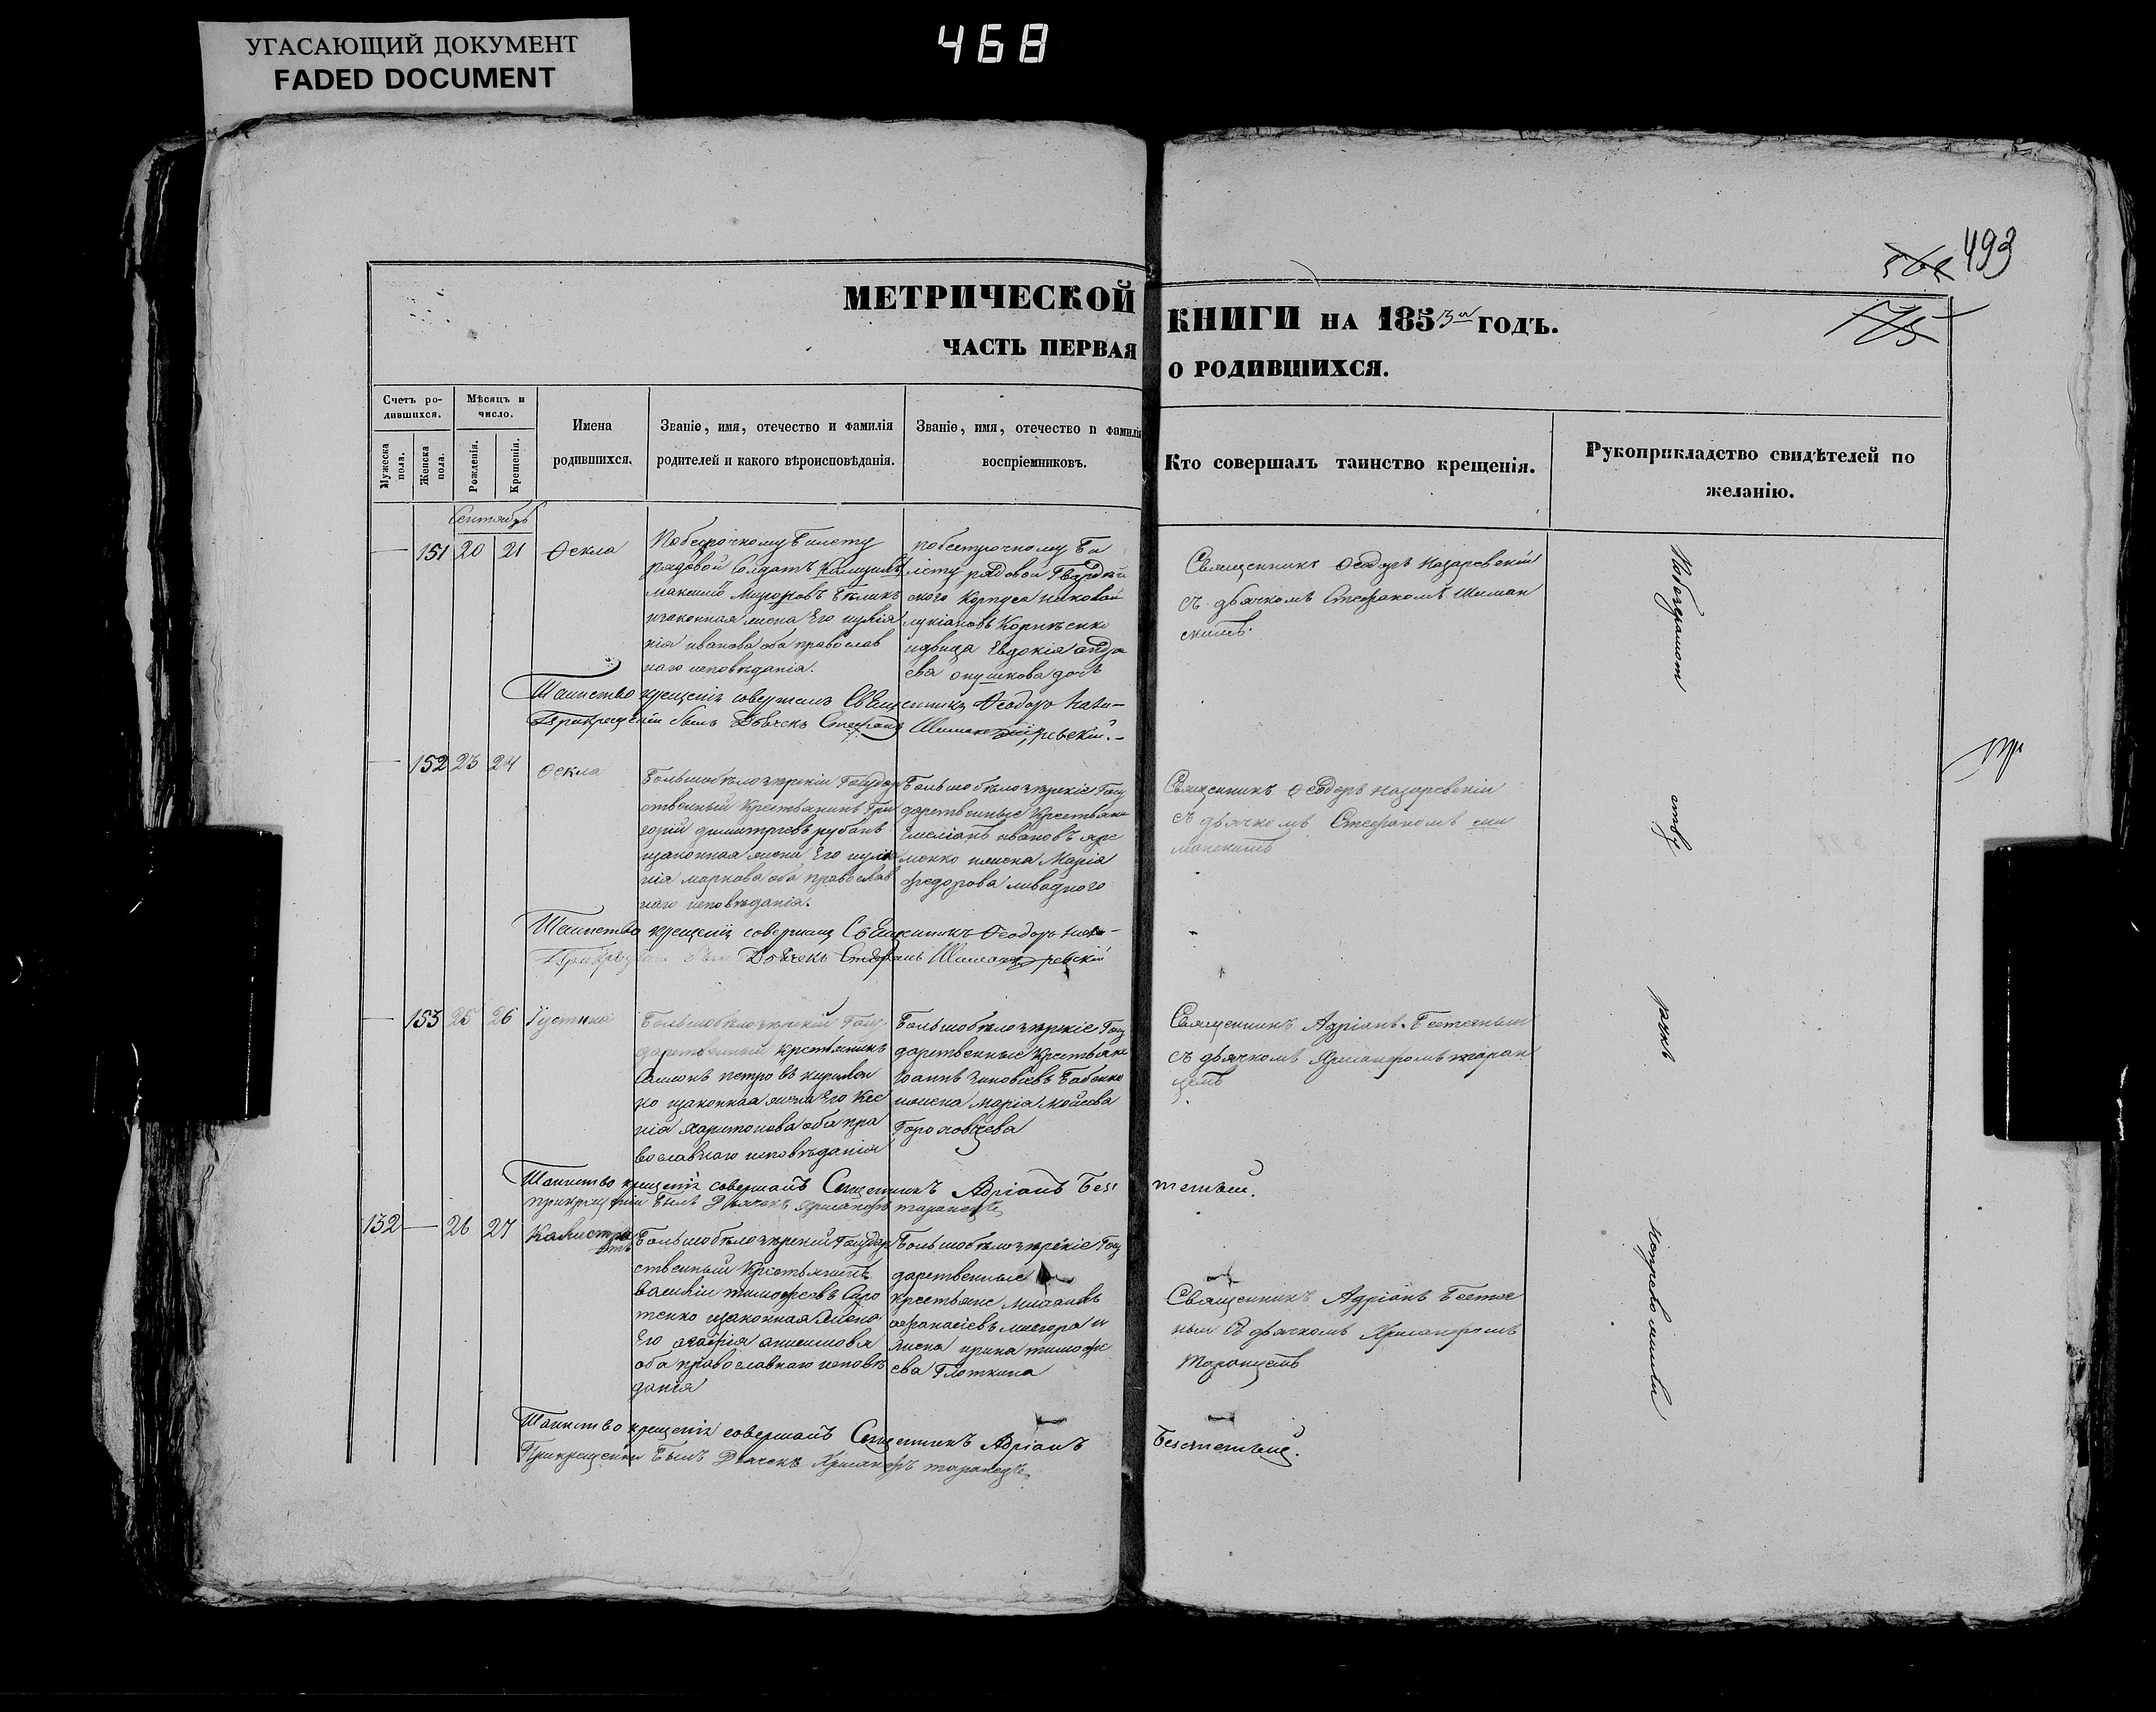 УГАСАЮЩИЙ ДОКУМЕНТ
FADED DOCUMENT
468
493
МЕТРИЧЕСКОЙ КНИГИ НА 1853й ГОДЪ.
ЧАСТЬ ПЕРВАЯ О РОДИВШИХСЯ.
Счетъ родившихся.
Мужеска пола.
Женска пола.
Мѣсяцъ и число.
Рожденія.
Крещенія.
Имена родившихся.
Званіе, имя, отечество и фамилія родителей и какого вѣроисповѣданія.
Званіе, имя, отечество и фамилія воспріемниковъ.
Кто совершалъ таинство крещенія.
Рукоприкладство свидѣтелей по желанію.
Сентябрь
151 20 21 Ѳекла
По безсрочному билету
рядовой Солдатъ
изаконная жена Его иулiя
нія иванова оба православ
наго исповѣданія.
по безсрочному Би
лету рядовой Гвардей
ского Корпуса
идѣвица Евдокія андре
ева
Священникъ Ѳеодоръ Назаревскій
съ дьячкомъ Стефаномъ Шиман
скимъ.
Таинство крещенія совершалъ Священникъ Ѳеодоръ Наза-
ревскій.
При крещеніи былъ Дьячекъ Стефанъ Шиманскій
152 23 24 Ѳекла
Большобѣлозѣрскій Государ
ственный Крестьянинъ Гри
горій димитріевъ рубанъ
изаконная жена Его иулiа
нія маркова оба православ
наго исповѣданія.
Большобѣлозѣрскіе Госу
дарственные Крестьяне
Емеліанъ ивановъ яре
менко ижена Марія
федорова ливадного
Священникъ Ѳеодоръ Назаревскій
съ дьячкомъ Стефаномъ ши
манскимъ
Таинство крещенія совершалъ Священникъ Ѳеодоръ Наза-
ревскій
При крещеніи былъ Дьячекъ Стефанъ Шиманскій
153 25 26 Іустина
Большобѣлозѣрскій Госу
дарственный крестьянинъ
Самсонъ петровъ кирилен
ко изаконная жена Его Ксе
нія харитонова оба пра
вославнаго исповѣданія
Большобѣлозѣрскіе Госу
дарственные Крестьяне
Іоаннъ зиновіевъ Бабенко
ижена марія моисеева
Гороховцева
Священникъ Адріанъ Безтемный
съ дьячкомъ Хрисанфомъ таран
цемъ
Таинство крещенія совершалъ Священникъ Адріанъ Без темный.
при крещеніи былъ Дьячекъ Хрисанфъ таранецъ
132 26 27 Каллистратъ
Большобѣлозѣрскій Государ
ственный Крестьянинъ
василій тимофеевъ Сиро
тенко изаконная жена
Его агафія анисимова
оба православнаго исповѣ
данія
Большобѣлозѣрскіе Госу
дарственные
крестьяне
афанасіевъ мисюра и
жена ирина тимофе
ева Глоткина
Священникъ Адріанъ Безтем
ный съ дьячкомъ Хрисанфомъ
Таранцемъ
Таинство крещенія совершалъ Священникъ Адріанъ Безтемный.
При крещеніи былъ Дьячекъ Хрисанфъ таранецъ